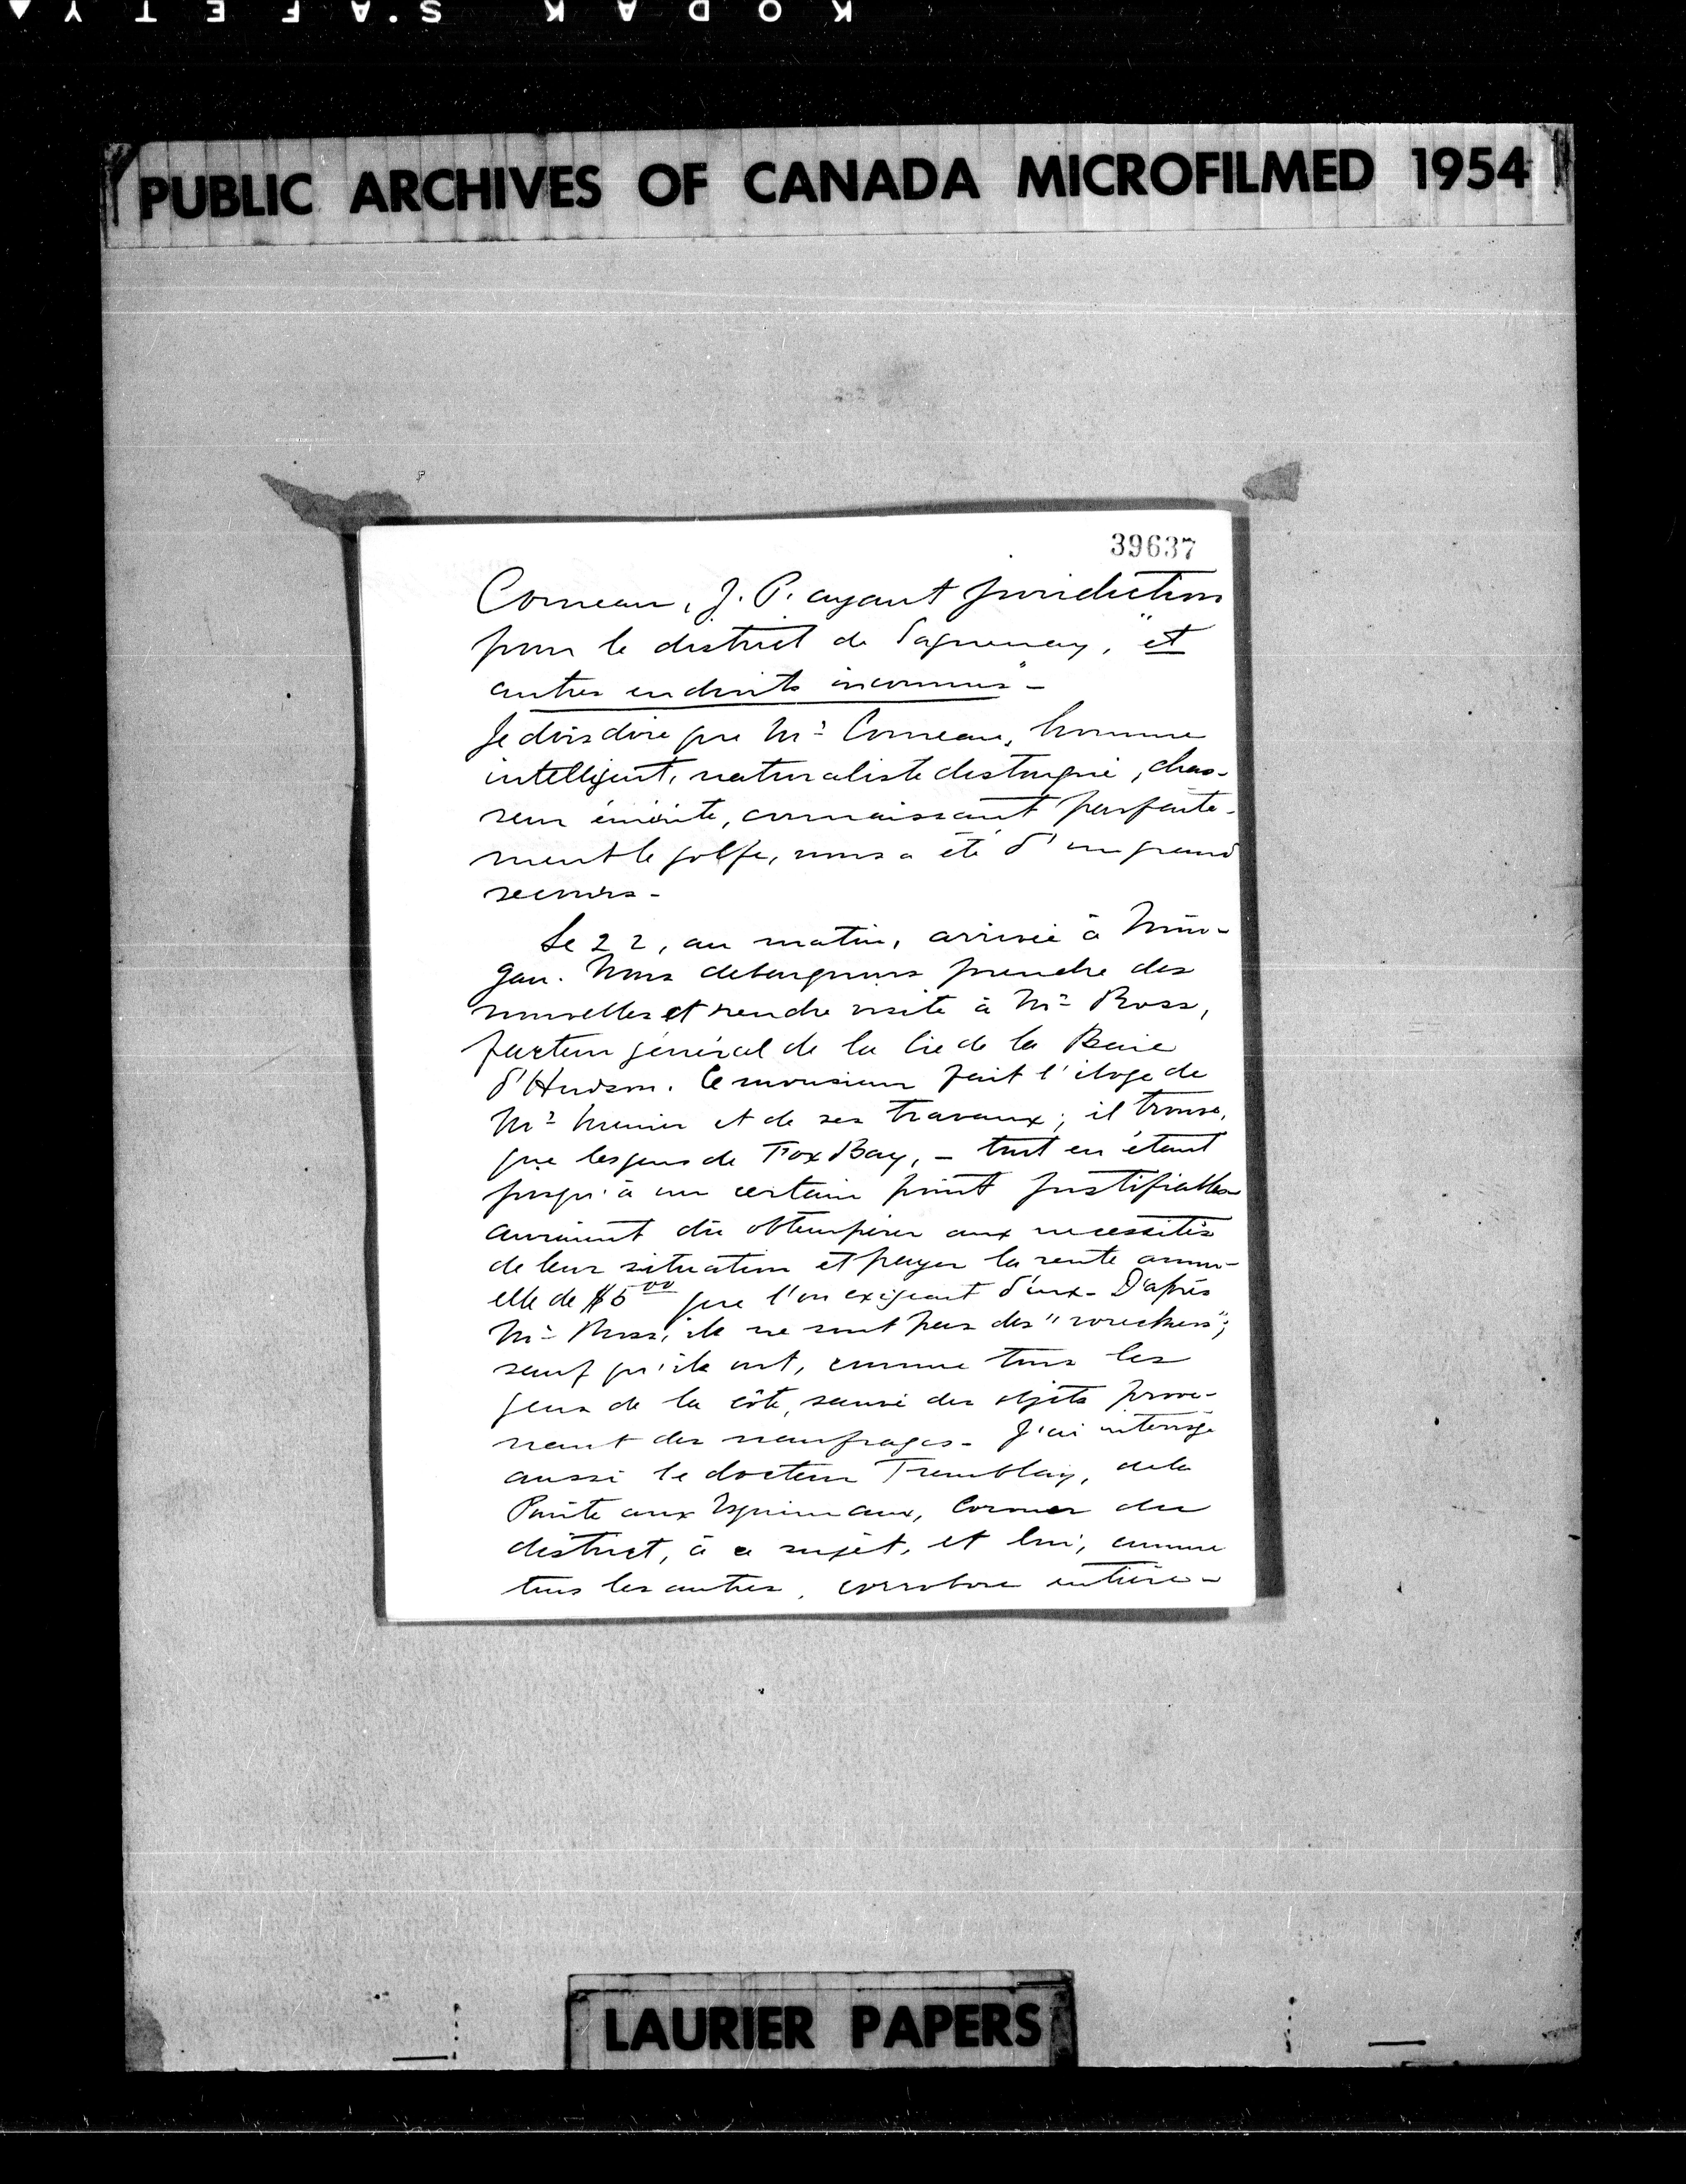 KODAK SAFETY
PUBLIC ARCHIVES OF CANADA MICROFILMED 1954
39637
Comeau, J. P. ayant juridiction
pour le district de Saguenay, "et
autres endroits inconnus" -
Je dois dire que Mr Comeau, homme
intelligent, naturaliste distingué, chas-
seur émérite, connaissant parfaite-
ment le golfe, nous a été d'un grand
secours -
Le 22, au matin, arrivée à Min-
gan. Nous debarquons prendre des
nouvelles et rendre visite à Mr Ross,
facteur général de la Cie de la Baie
d'Hudson. Ce monsieur fait l'éloge de
Mr Menier et de ses travaux; il trouve,
que les gens de Fox Bay, - tout en étant
jusqu'à un certain point justifiables
auraient dû obtempérer aux necessités
de leur situation et payer la rente annu-
elle de $5 00 que l'on exigeait d'eux - D'après
Mr Ross, ils ne sont pas des "wreckers";
sauf qu'ils ont, comme tous les
gens de la côte, sauvé des objets prove-
nant des naufrages - J'ai interrogé
aussi le docteur Tremblay, de la
Pointe aux Esquimaux, Coroner du
district, à ce sujet, et lui, comme
tous les autres, corrobore entière-
LAURIER PAPERS